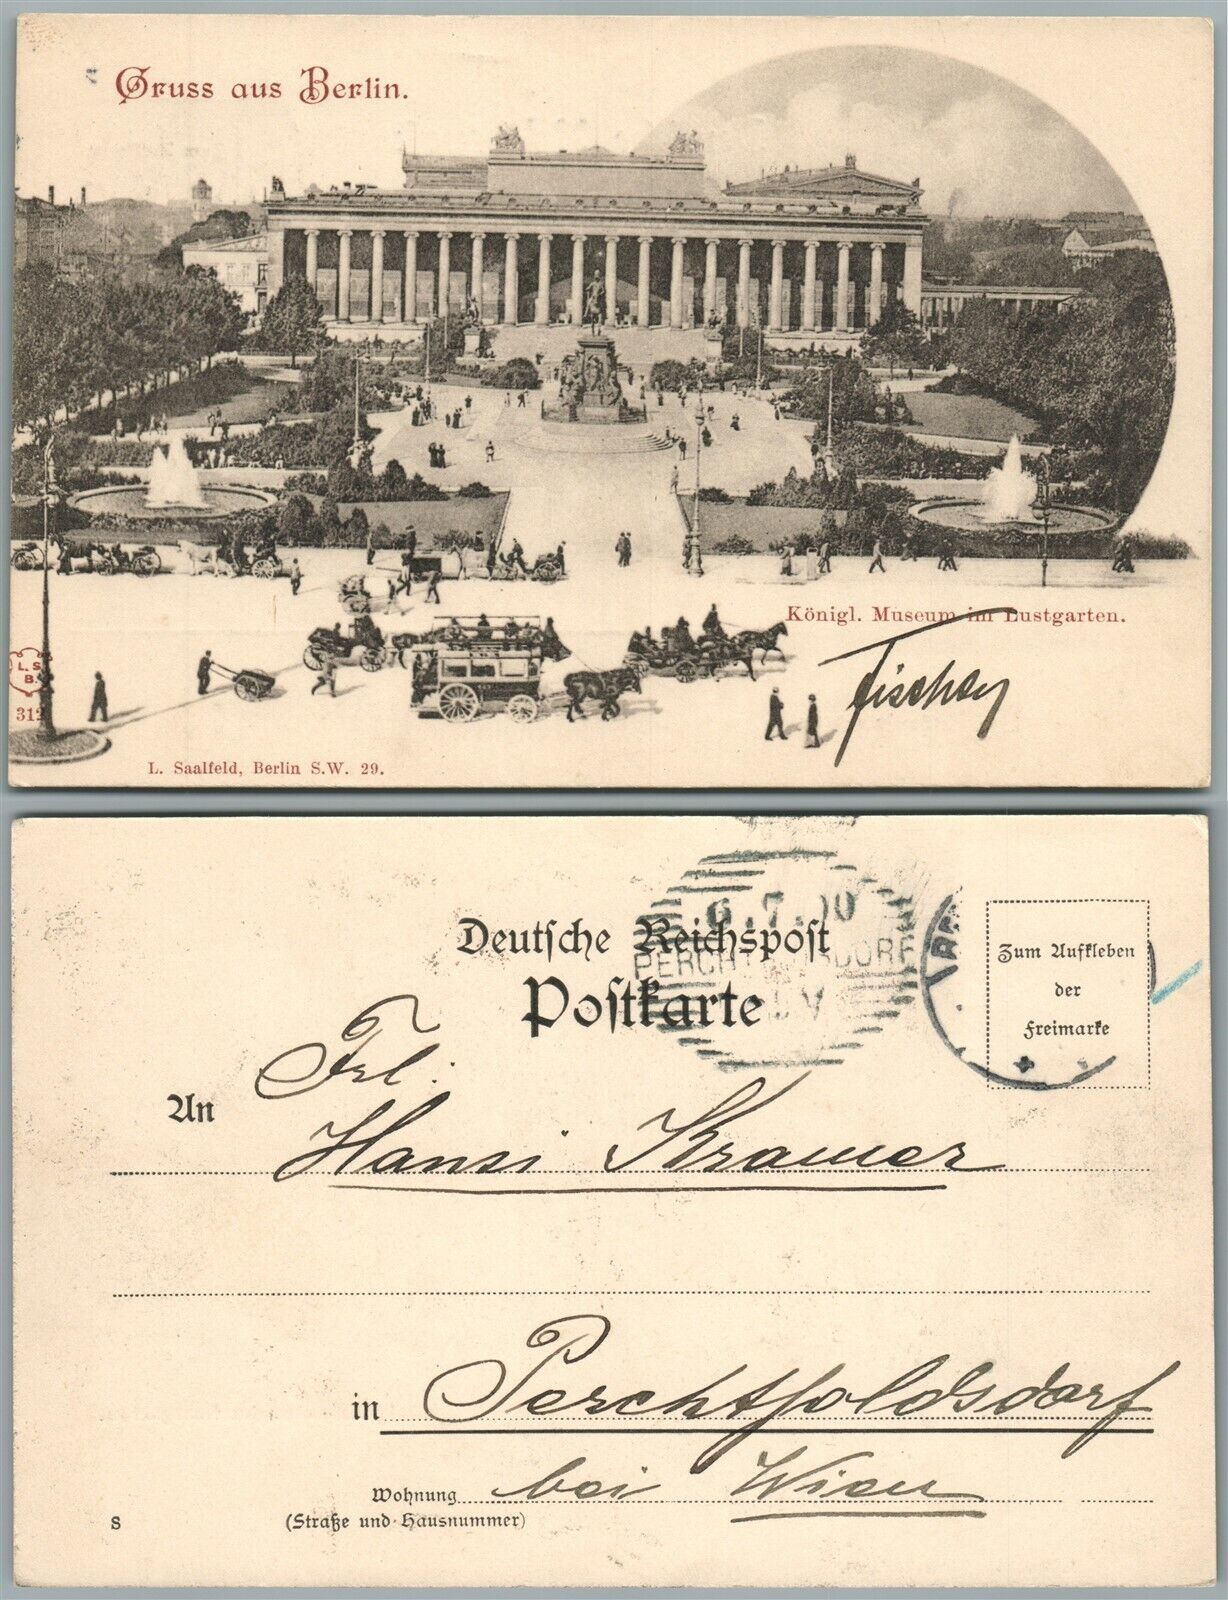 Gruss aus Berlin.
Königl. Museum im Lustgarten.
L. S.
B.
312
L. Saalfeld, Berlin S.W. 29.
6. 7. 00
Deutsche Reichspost
PERCHTOLDSDORF
Postkarte
Zum Aufkleben
der
Freimarke
An
Frl.
Hansi Kramer
in Perchtholdsdorf
Wohnung bei Wien
(Straße und Hausnummer)
S